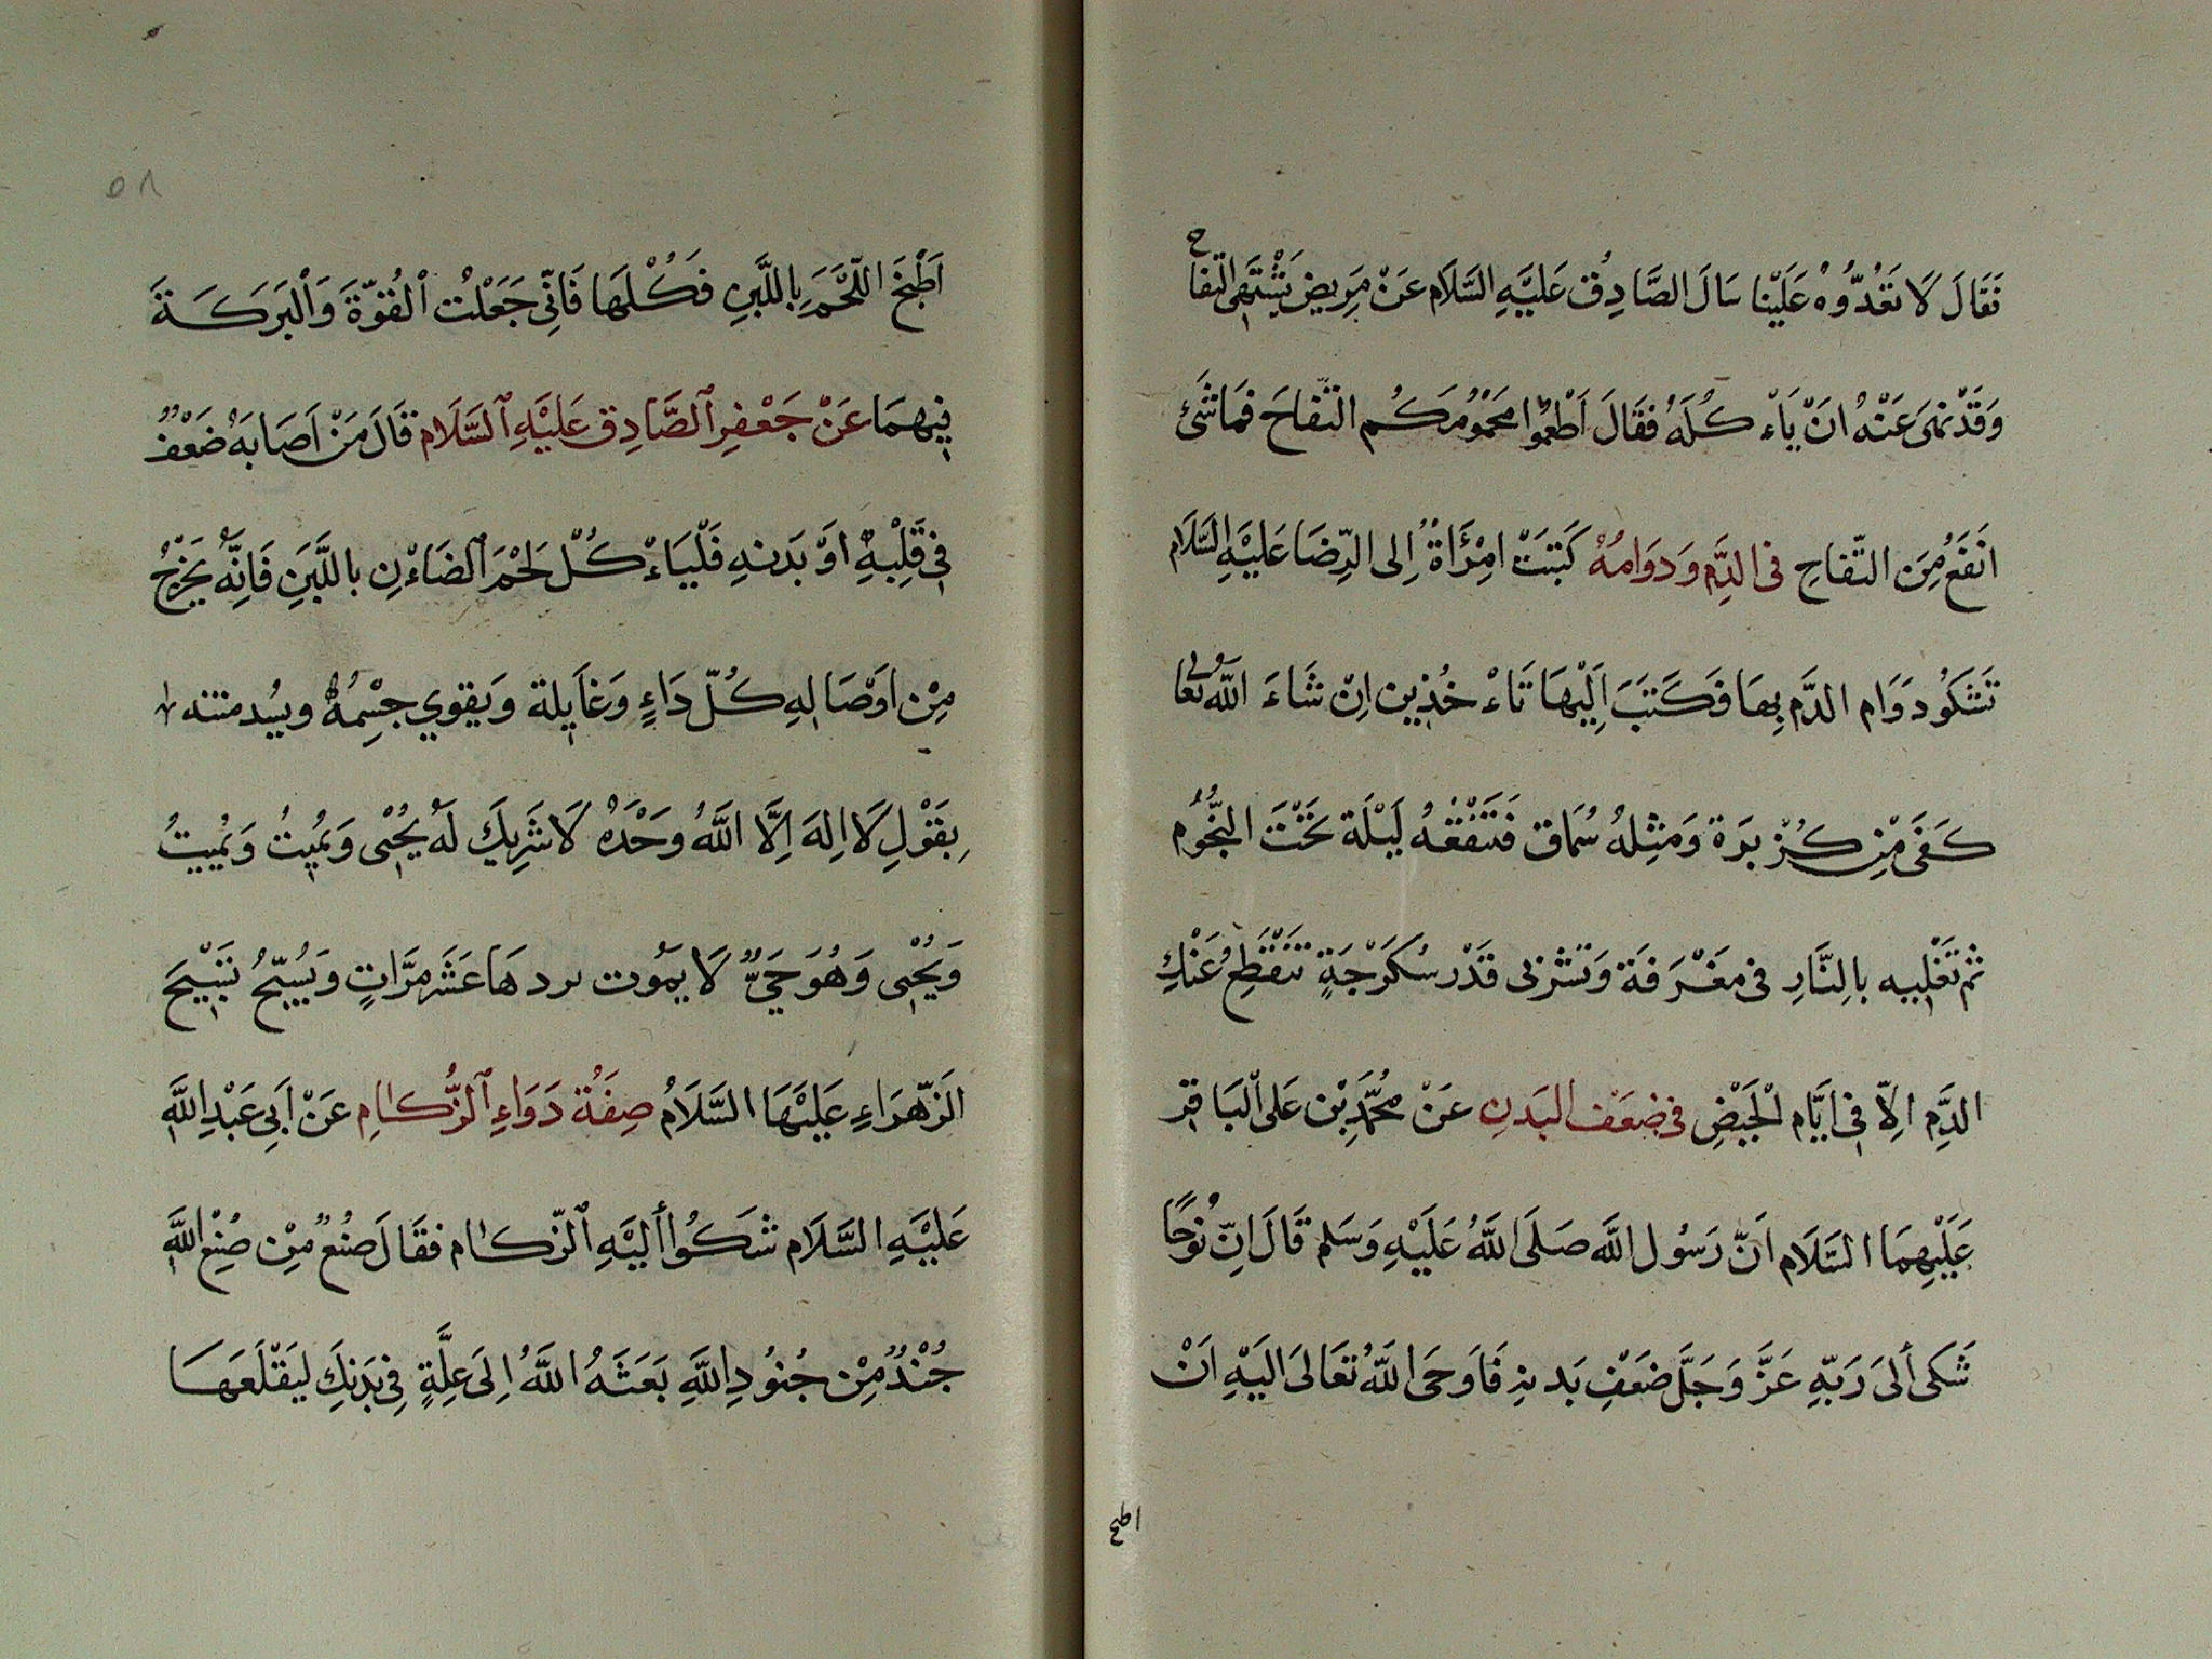 فَقَالَ لَا تَعُدُّوهُ عَلَيْنَا سَالَ الصَّادِقُ عَلَيْهِ السَّلَام عَنْ مَرِيضٍ يَشْتَهِى التفاح
وَقَدْ نهىَ عَنْهُ انْ يَاءْ كُلَهُ فَقَالَ اَطْعِمُوا مَحْمُومَكُم التّفَّاحَ فَمَا شَىْ
انفَعُ مِنَ التّفاحِ فى الدَّمِ وَدَوَامُهُ كَتبَتْ امْرَأَةٌ اِلى الرِّضَا عَليْهِ السَّلَام
تَشكُو دَوَام الدَّم بِهَا فَكَتَبَ اِلَيْهَا تَاءْ خُذِين اِنْ شَاءَ اللّٰه تعالى
كَفَى مْنِ كُزْبَرَة وَمثِلهُ سُمَاق فَتَنْقَعُهُ لَيْلَة تَحْتَ النجُّوُم
ثم تَغْلِيه بالِنَّارِ فى مَغْرَفَة وَتشربى قَدْر سُكَرّجَةٍ تنْقَطِعُ عَنْكِ
الدَّمِ الِاّ فى ايَّام الْحَيْضِ فى ضعَف البَدنِ عَنْ مُحَمَّدِ بْن عَلى الْبَاقِر
عَلَيْهِمَا السَّلَام اَنّ رَسُول اللَّه صَلَى اللَّهُ عَلَيْهِ وَسَلم قَالَ اِنّ نُوحًا
شَكى ألىَ رَبّهِ عَزَّ وَجَلَّ ضَعْفِ بَدنهِ فَاَوحَى اللَّهُ تعَالىَ اليَهِ اَنْ
اطبخ
٥٨
اَطْبخَ اللّحَّمَ بِاللَّبنِ فَكُلْهَا فَانِّى جَعَلْتُ اْلقُوّةَ وَاْلبَركَةَ
فِيهِمَا عَنْ جَعْفِر ٱلصَّادِق عَلَيْهِ ٱلسَّلَام قَالَ مَنْ اَصَابَهُ ضَعْفٌ
فى قَلْبِهِ اوْ بَدَنهِ فَلْيَاءْ كُلْ لَحْمَ ٱلضَاءْنِ بِاللَّبَنِ فَانِّهُ يَخْرُجُ
مِنْ اوَصَالهِ كُلّ دَاءٍ وَغَايِلة وَيقوي جِسْمُهُ ويُشد متنه
بِقَوْلِ لَا اِلهَ اِلَّا اللَّهُ وحْدَهُ لَا شَرِيكَ لَهُ يُحْيى وَيُمِيتُ وَيُمِيتُ
وَيُحْيِى وَهُوَ حَيٌّ لَا يمُوت يرد هَا عَشَر مرَّاتٍ وَيُسَبّحُ تَسْبِيحَ
الَزهّرَاءِ عَلَيْهَا السَّلَامُ صِفَة دَوَاءِ ٱلزُّكَامِ عَنْ اَبِى عَبْدِ اللَّهِ
عَليْهِ السَّلَام شَكَوُا أليَهِ ٱلزّكام فقَالَ صُنْعٌ مِنْ صُنْعِ اللَّهِ
جُنْدٌ مِنْ جُنوُدِ اللَّهِ بَعَثَهُ اللَّهُ اِلَى عِلَّةٍ فِى بَدَنِكَ ليَقْلَعَهَا